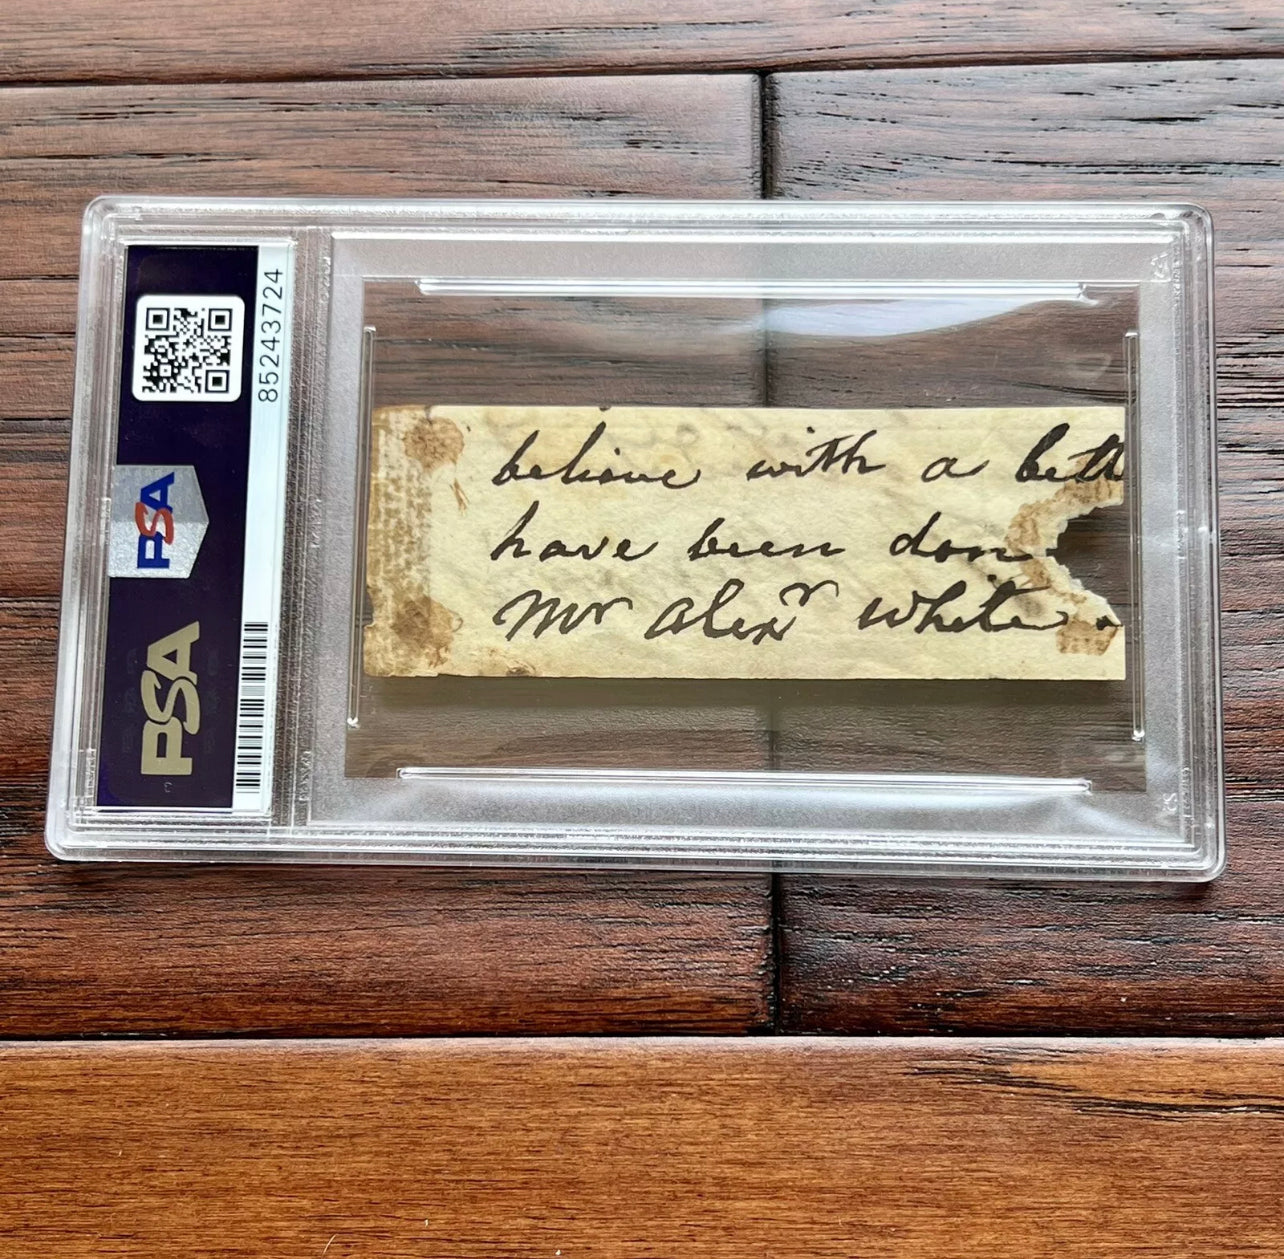 85243724
PSA
PSA
believe with a bett
have been don
Mr Alexr White.